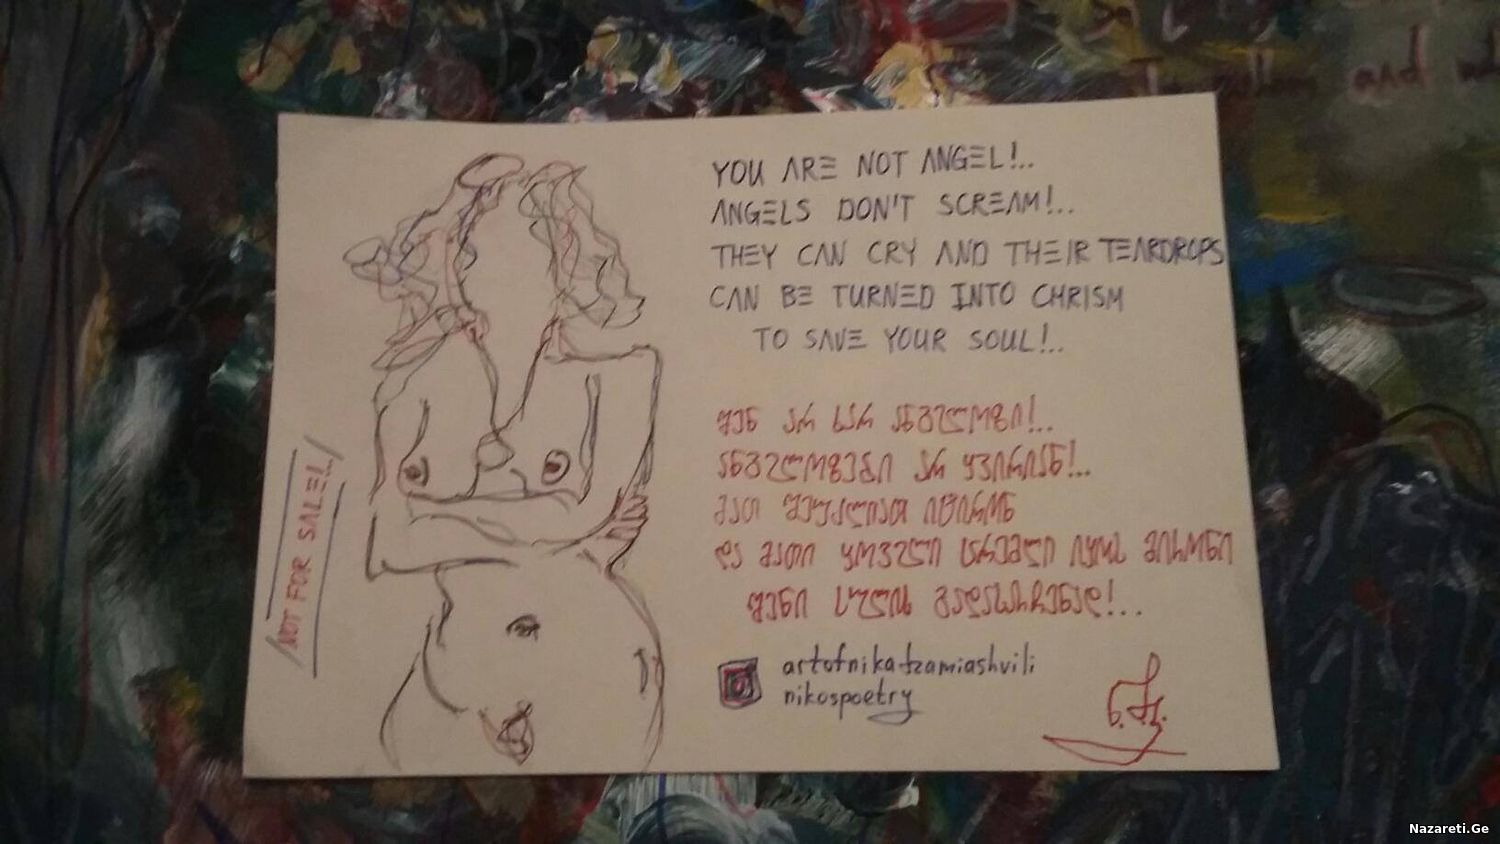 YOU ARE NOT ANGEL!..
ANGELS DON'T SCREAM!..
THEY CAN CRY AND THEIR TEARDROPS
CAN BE TURNED INTO CHRISM
TO SAVE YOUR SOUL!..
შენ არ ხარ ანგელოზი!..
ანგელოზები არ ყვირიან!..
მათ შეუძლიათ იტირონ
და მათი ყოველი ცრემლი იყოს მირონი
შენი სულის გადასარჩენად!..
artofnikatzamiashvili
nikospoetry
/NOT FOR SALE!../
and
Nazareti.Ge